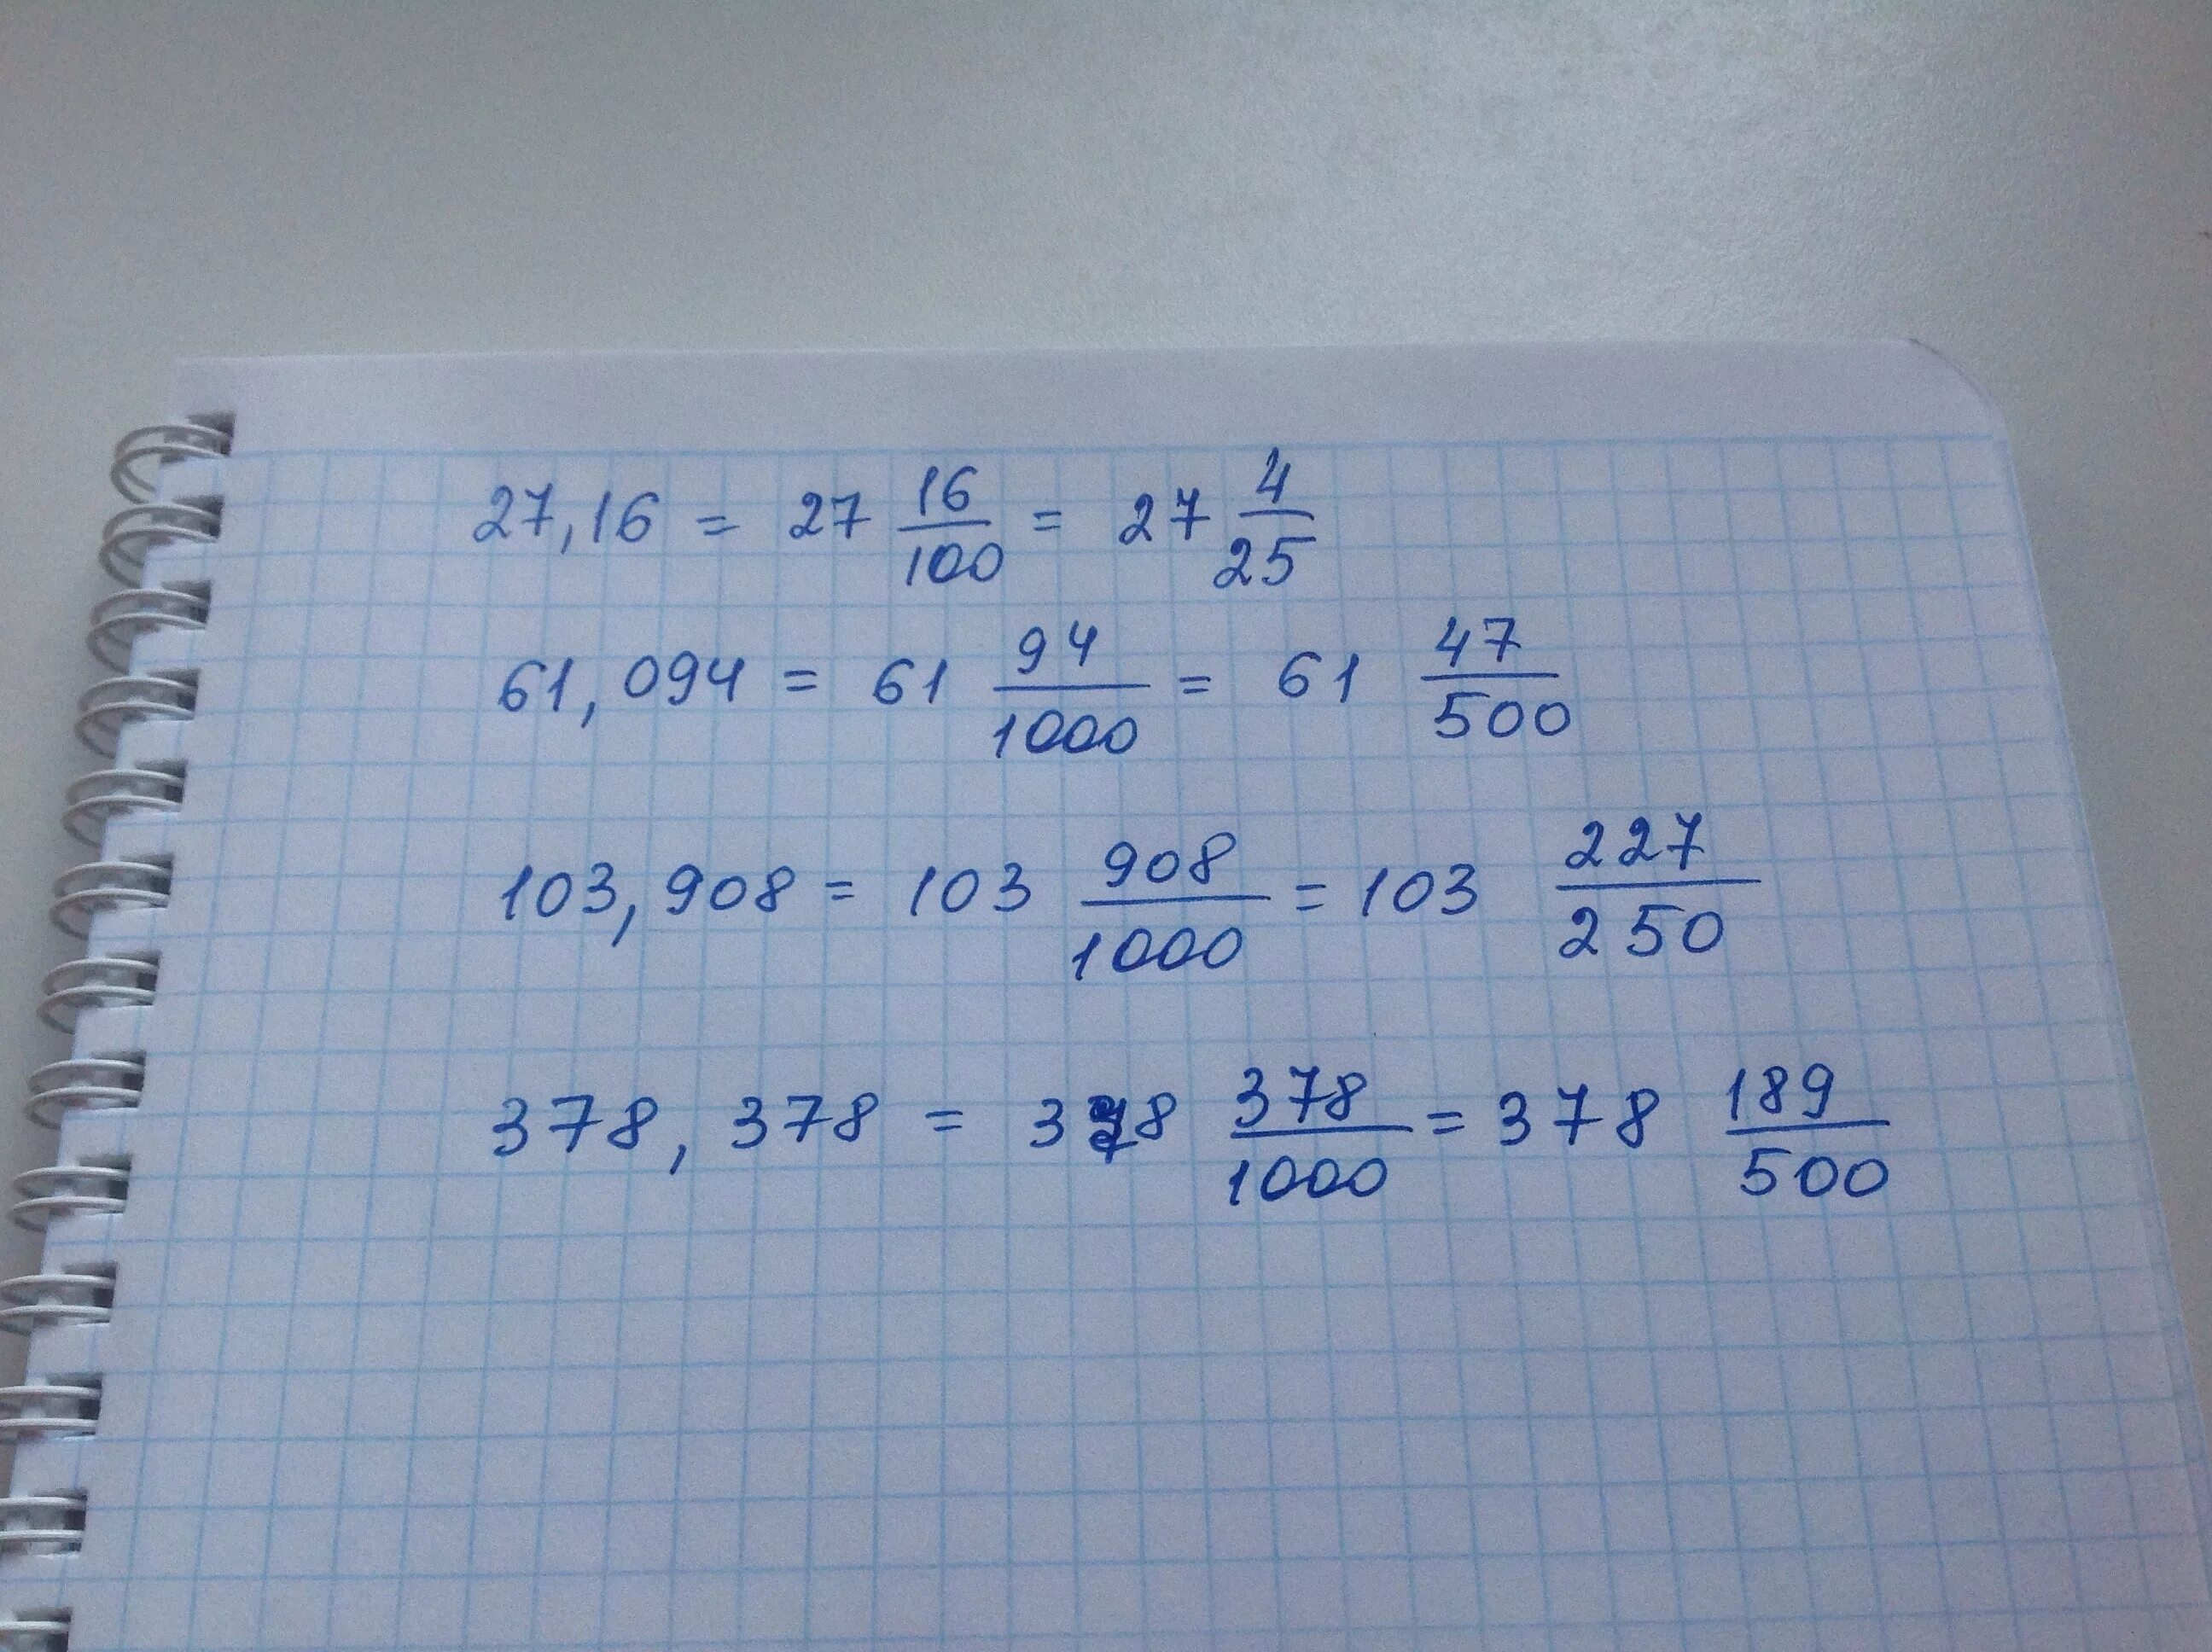 27,16 = 27 16/100 = 27 4/25
61,094 = 61 94/1000 = 61 47/500
103,908 = 103 908/1000 = 103 227/250
378,378 = 378 378/1000 = 378 189/500